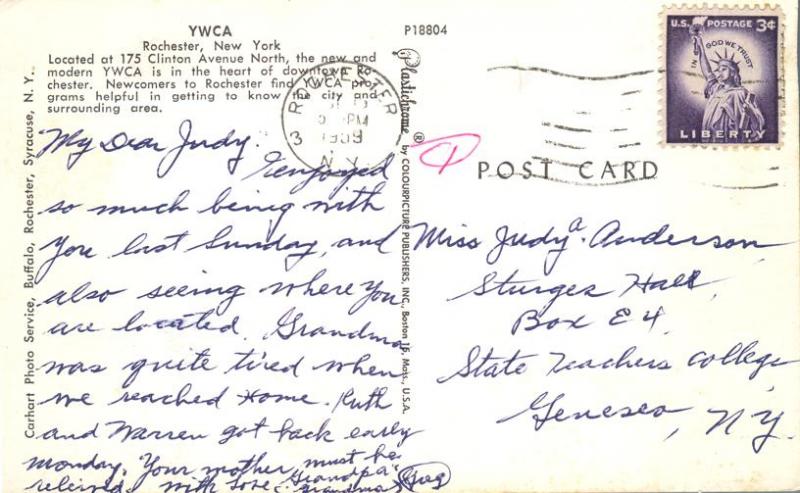 YWCA
Rochester, New York
Located at 175 Clinton Avenue North, the new and
modern YWCA is in the heart of downtown Ro-
chester. Newcomers to Rochester find YWCA pro-
grams helpful in getting to know the city and
surrounding area.
P18804
My Dear Judy.
I enjoyed
so much being with
you last Sunday, and
also seeing where you
are located. Grandma
was quite tired when
we reached Home. Ruth
and Warren got back early
monday. Your mother must be
relieved. with love. Grandpa
& grandma
Carhart Photo Service, Buffalo, Rochester, Syracuse, N. Y.
Plastichrome ® by COLOURPICTURE PUBLISHERS, INC., Boston 15, Mass., U.S.A.
ROCHESTER
3
PM
1959
N.Y.
U.S. POSTAGE 3¢
IN GOD WE TRUST
LIBERTY
POST CARD
Miss Judy A. Anderson
Sturges Hall,
Box E4
State Teachers College
Geneseo, NY.